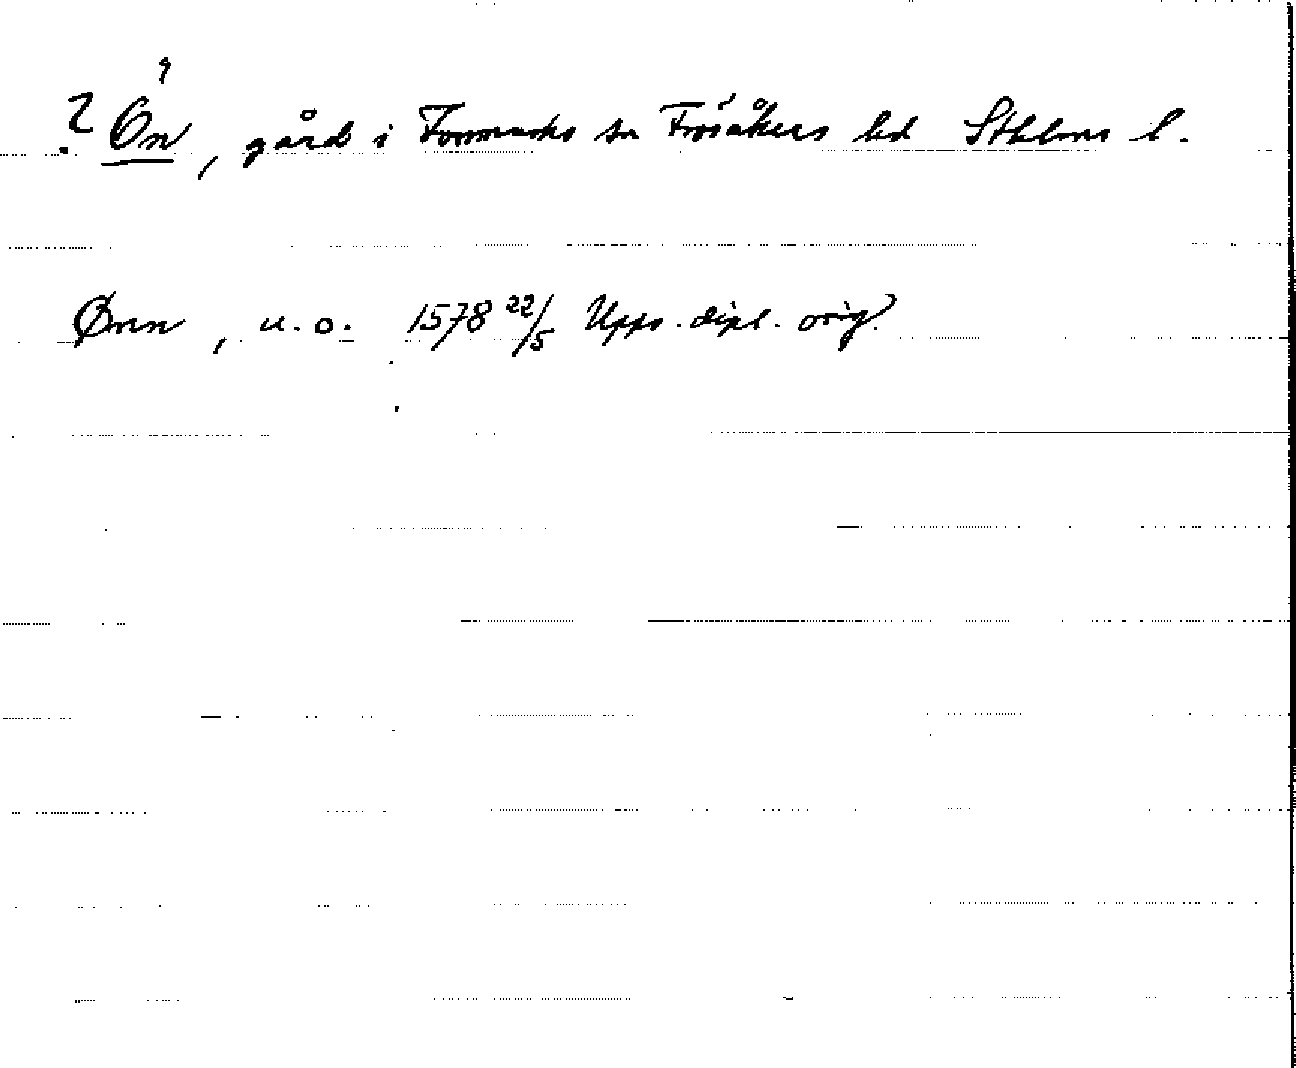 ? Ön, gård i Forsmarks sn Frösåkers hd Sthlms l.
Øren, u.o. 1578 22/5 Upps. dipl. orig.